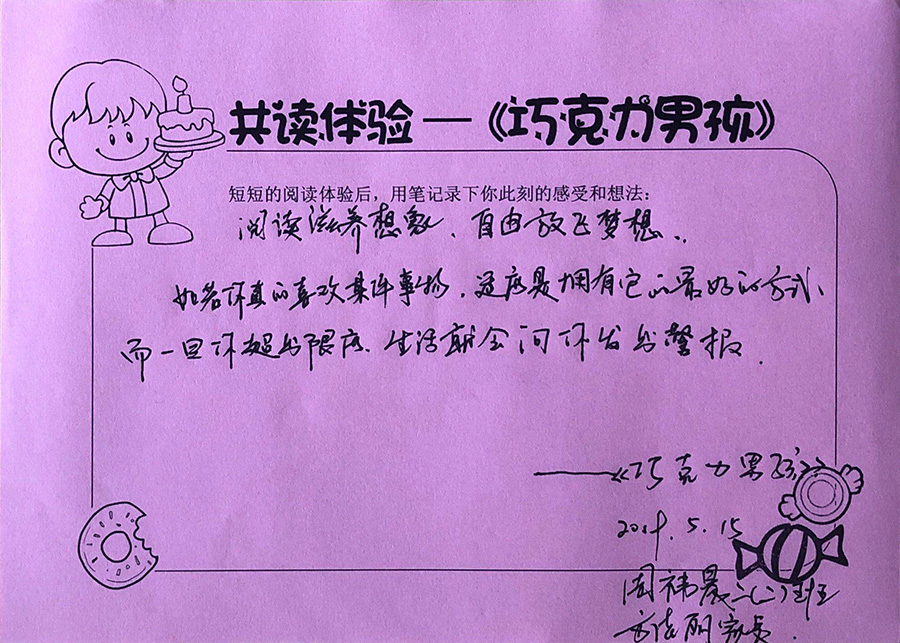 共读体验—《巧克力男孩》
短短的阅读体验后，用笔记录下你此刻的感受和想法：
阅读滋养想象、自由放飞梦想。
如若你真的喜欢某件事物，适度是拥有它的最好的方式、
而一旦你超出限度、生活就会向你发出警报.
——《巧克力男孩》
2019.5.15
周祎晨 二(二)班
家长